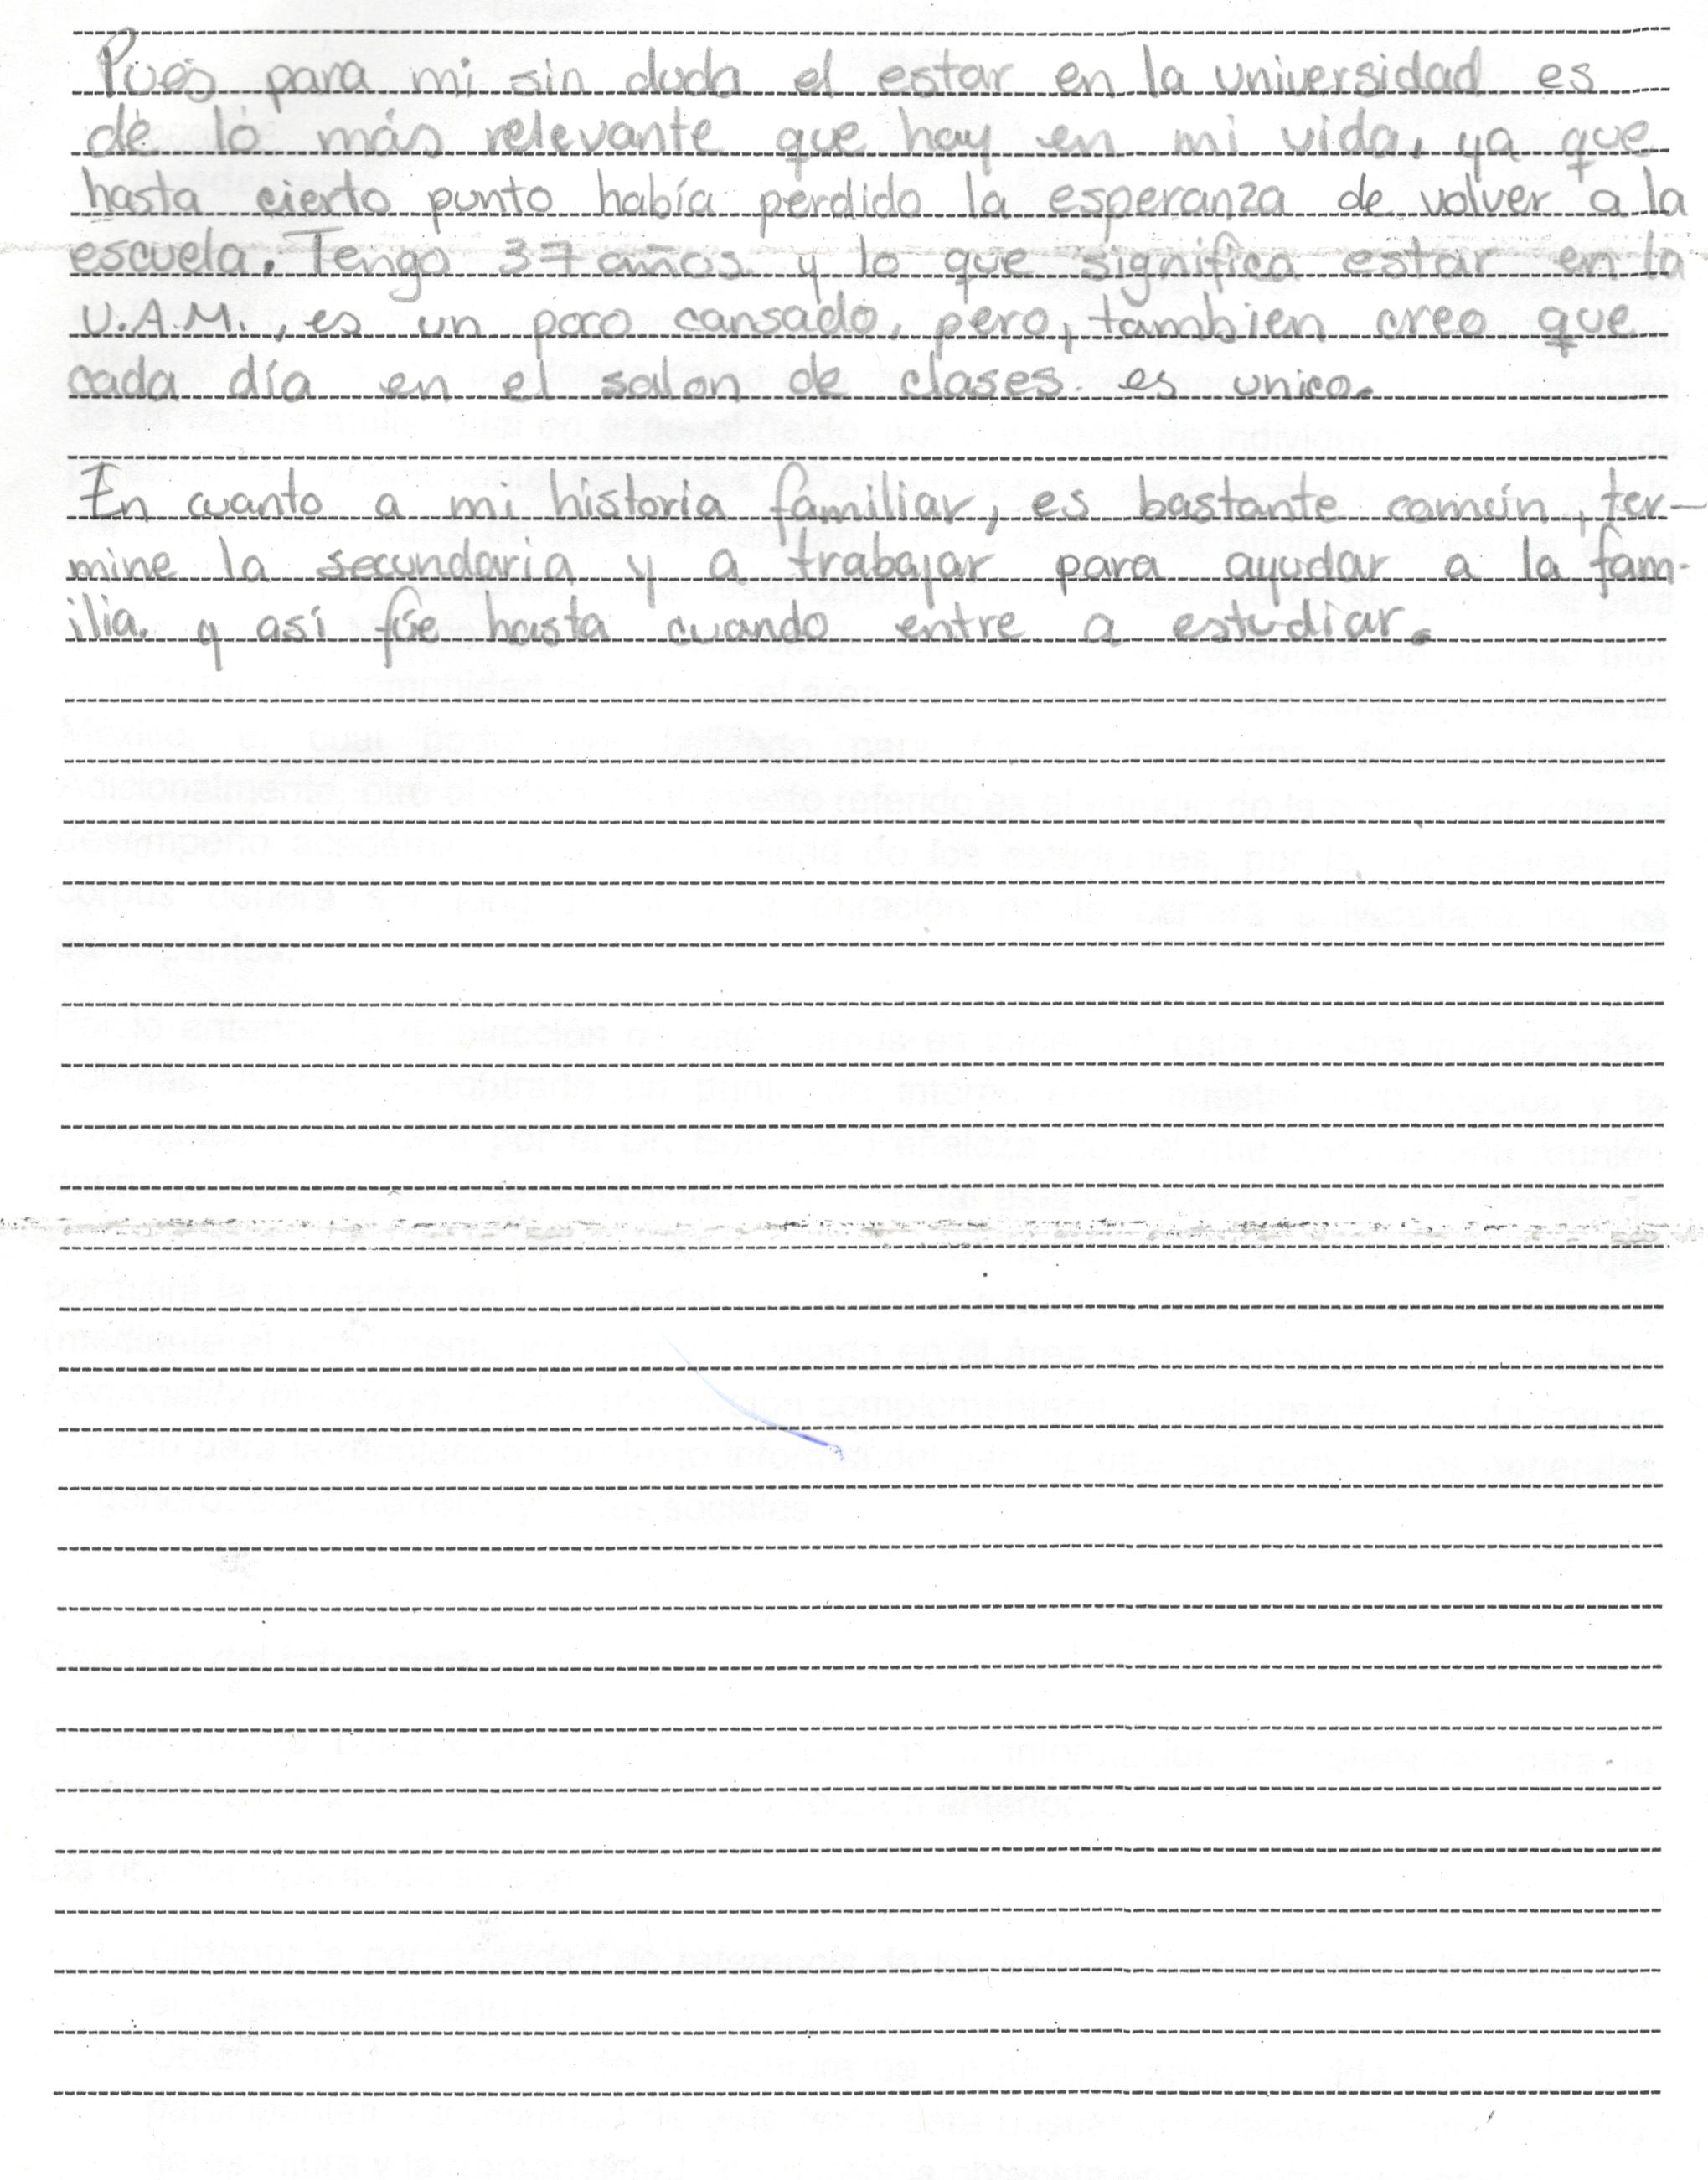 Pues para mi sin duda el estar en la universidad es
de lo más relevante que hay en mi vida, ya que
hasta cierto punto había perdido la esperanza de volver a la
escuela. Tengo 37 años y lo que significa estar en la
U.A.M., es un poco cansado, pero, tambien creo que
cada día en el salon de clases es unico.
En cuanto a mi historia familiar, es bastante común, ter-
mine la secundaria y a trabajar para ayudar a la fam-
ilia. y así fúe hasta cuando entre a estudiar.